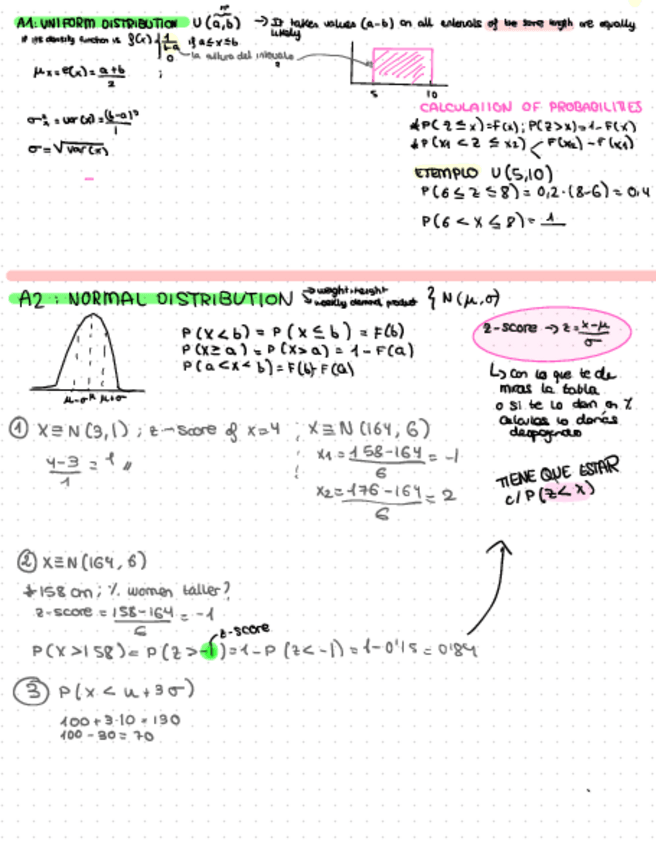 A1: UNIFORM DISTRIBUTION U (a,b) → It takes values (a-b) on all intervals of the same length are equally likely
If its density function is f(x) { 1/b-a if a≤x≤b
0
la altura del intervalo
μx = e(x) = a+b/2 ;
5 10
CALCULATION OF PROBABILITES
P(Z ≤ x) = F(x) ; P(Z > x) = 1 - F(x)
P(x1 < Z ≤ x2) < F(x2) - F(x1)
σ²x = var (x) = (b-a)²/1
σ = √var(x)
EJEMPLO U(5,10)
P(6 ≤ Z ≤ 8) = 0,2 · (8-6) = 0,4
P(6 < X ≤ 8) = 1
A2: NORMAL DISTRIBUTION → weight, height
→ weekly demand product } N(μ,σ)
P(X < b) = P(X ≤ b) = F(b)
P(X ≥ a) = P(X > a) = 1 - F(a)
P(a < X < b) = F(b) - F(a)
μ-σ μ μ+σ
z-score → z = x-μ/σ
↳ con lo que te da
miras la tabla
o si te lo dan en %
calculas lo demás
despejando
TIENE QUE ESTAR
c/ P(Z < X)
① X ≡ N(3,1) ; z-score of x=4 ; X ≡ N(164, 6)
4-3/1 = 1 //
x1 = 158-164/6 = -1
x2 = 176-164/6 = 2
② X ≡ N(164, 6)
158 cm ; % women taller?
z-score = 158-164/6 = -1
z-score
P(X > 158) = P(Z > -1) = 1 - P(Z < -1) = 1 - 0'15 = 0'84
③ P(X < u + 3σ)
100 + 3·10 = 130
100 - 30 = 70